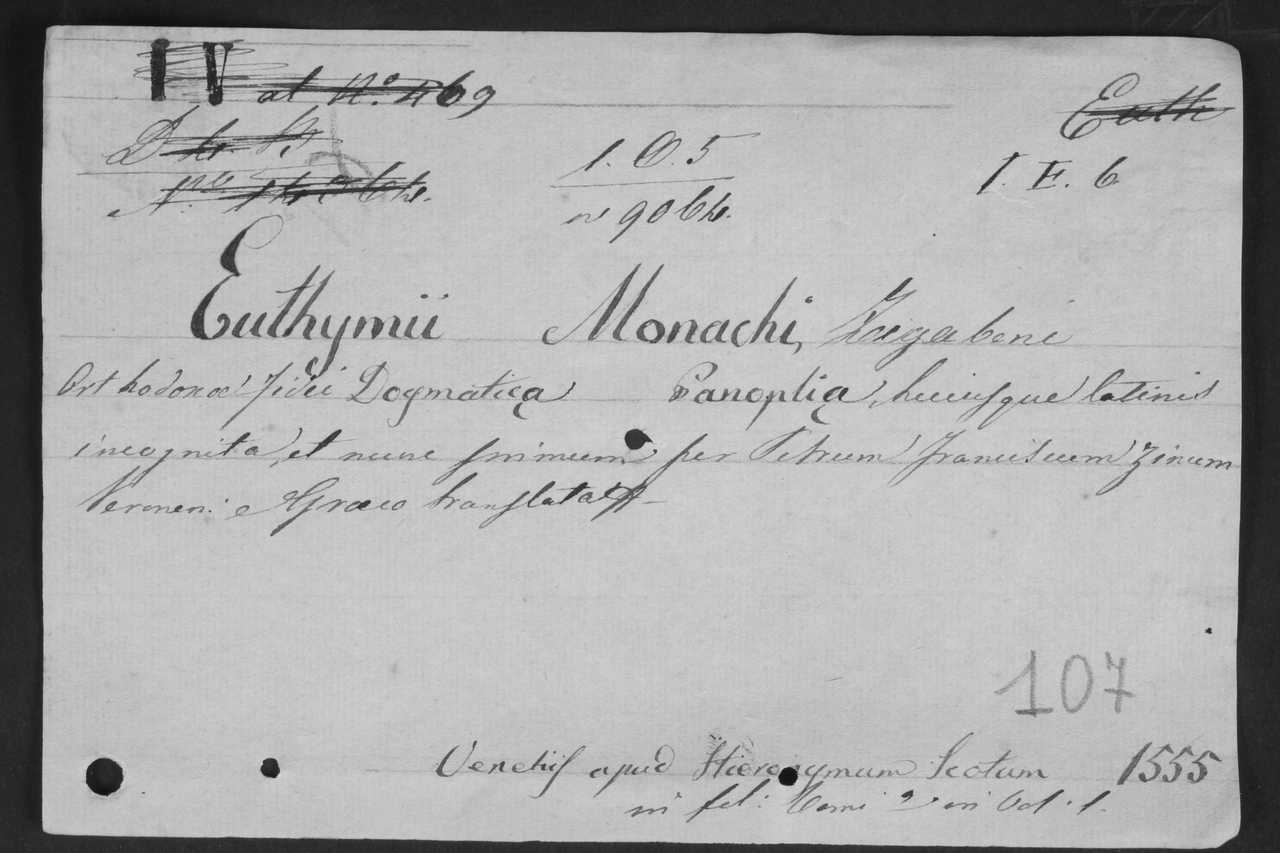 IV ad No. 469
Euth
1. O. 5
I. E. 6
9064.
Euthymii Monachi, Zagabeni
Orthodoxæ fidei Dogmatica Panoplia, hucusque latinis
incognita, et nunc primum per Petrum Franciscum Zinum
Veronen: e Græco translata
107
Venetiis apud Hieronymum Scotum 1555
in fol: Tomi 2 in Vol. 1.